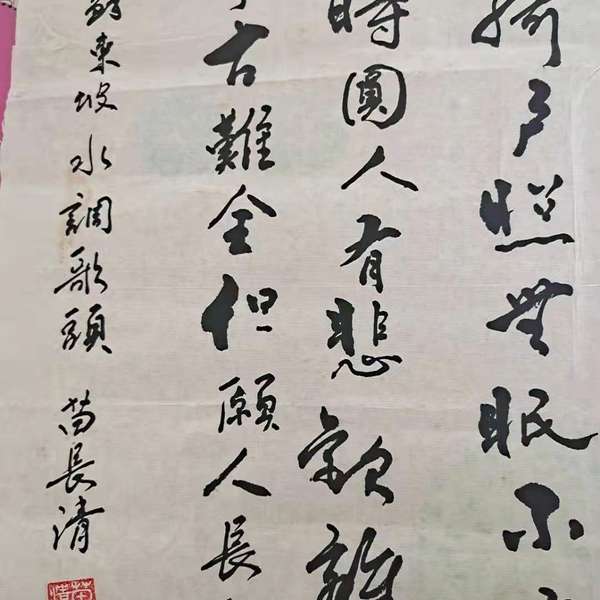 綺户照無眠不
時圓人有悲歡離
古難全但願人長
蘇東坡水調歌頭 苗長清